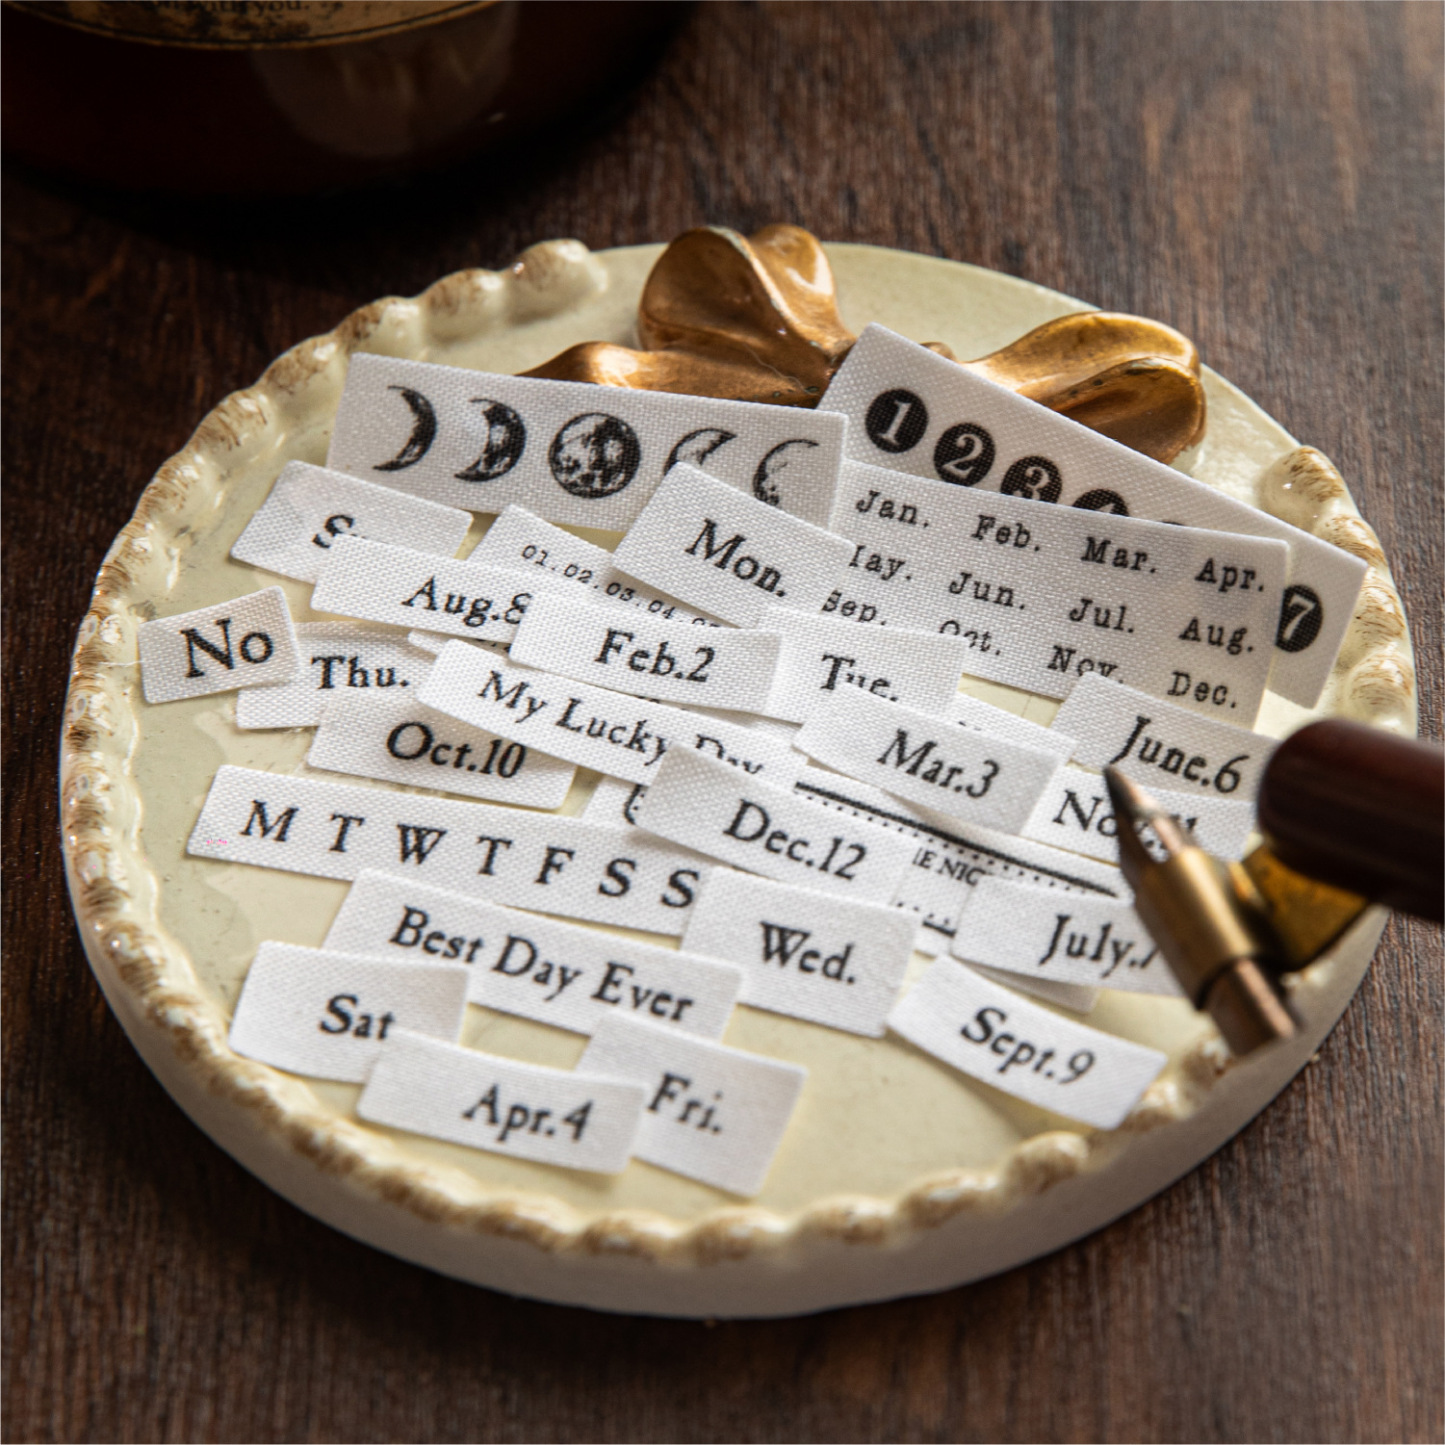 with you.
1 2 3 4 7
Jan. Feb. Mar. Apr.
Jun. Jul. Aug.
Sep. Oct. Nov. Dec.
Mon.
01.02.03.04
Aug.8
No
Thu.
Feb.2
Tue.
My Lucky Day
Oct.10
Mar.3
June.6
M T W T F S S
Dec.12
July.7
Best Day Ever
Wed.
Sat
Sept.9
Apr.4
Fri.